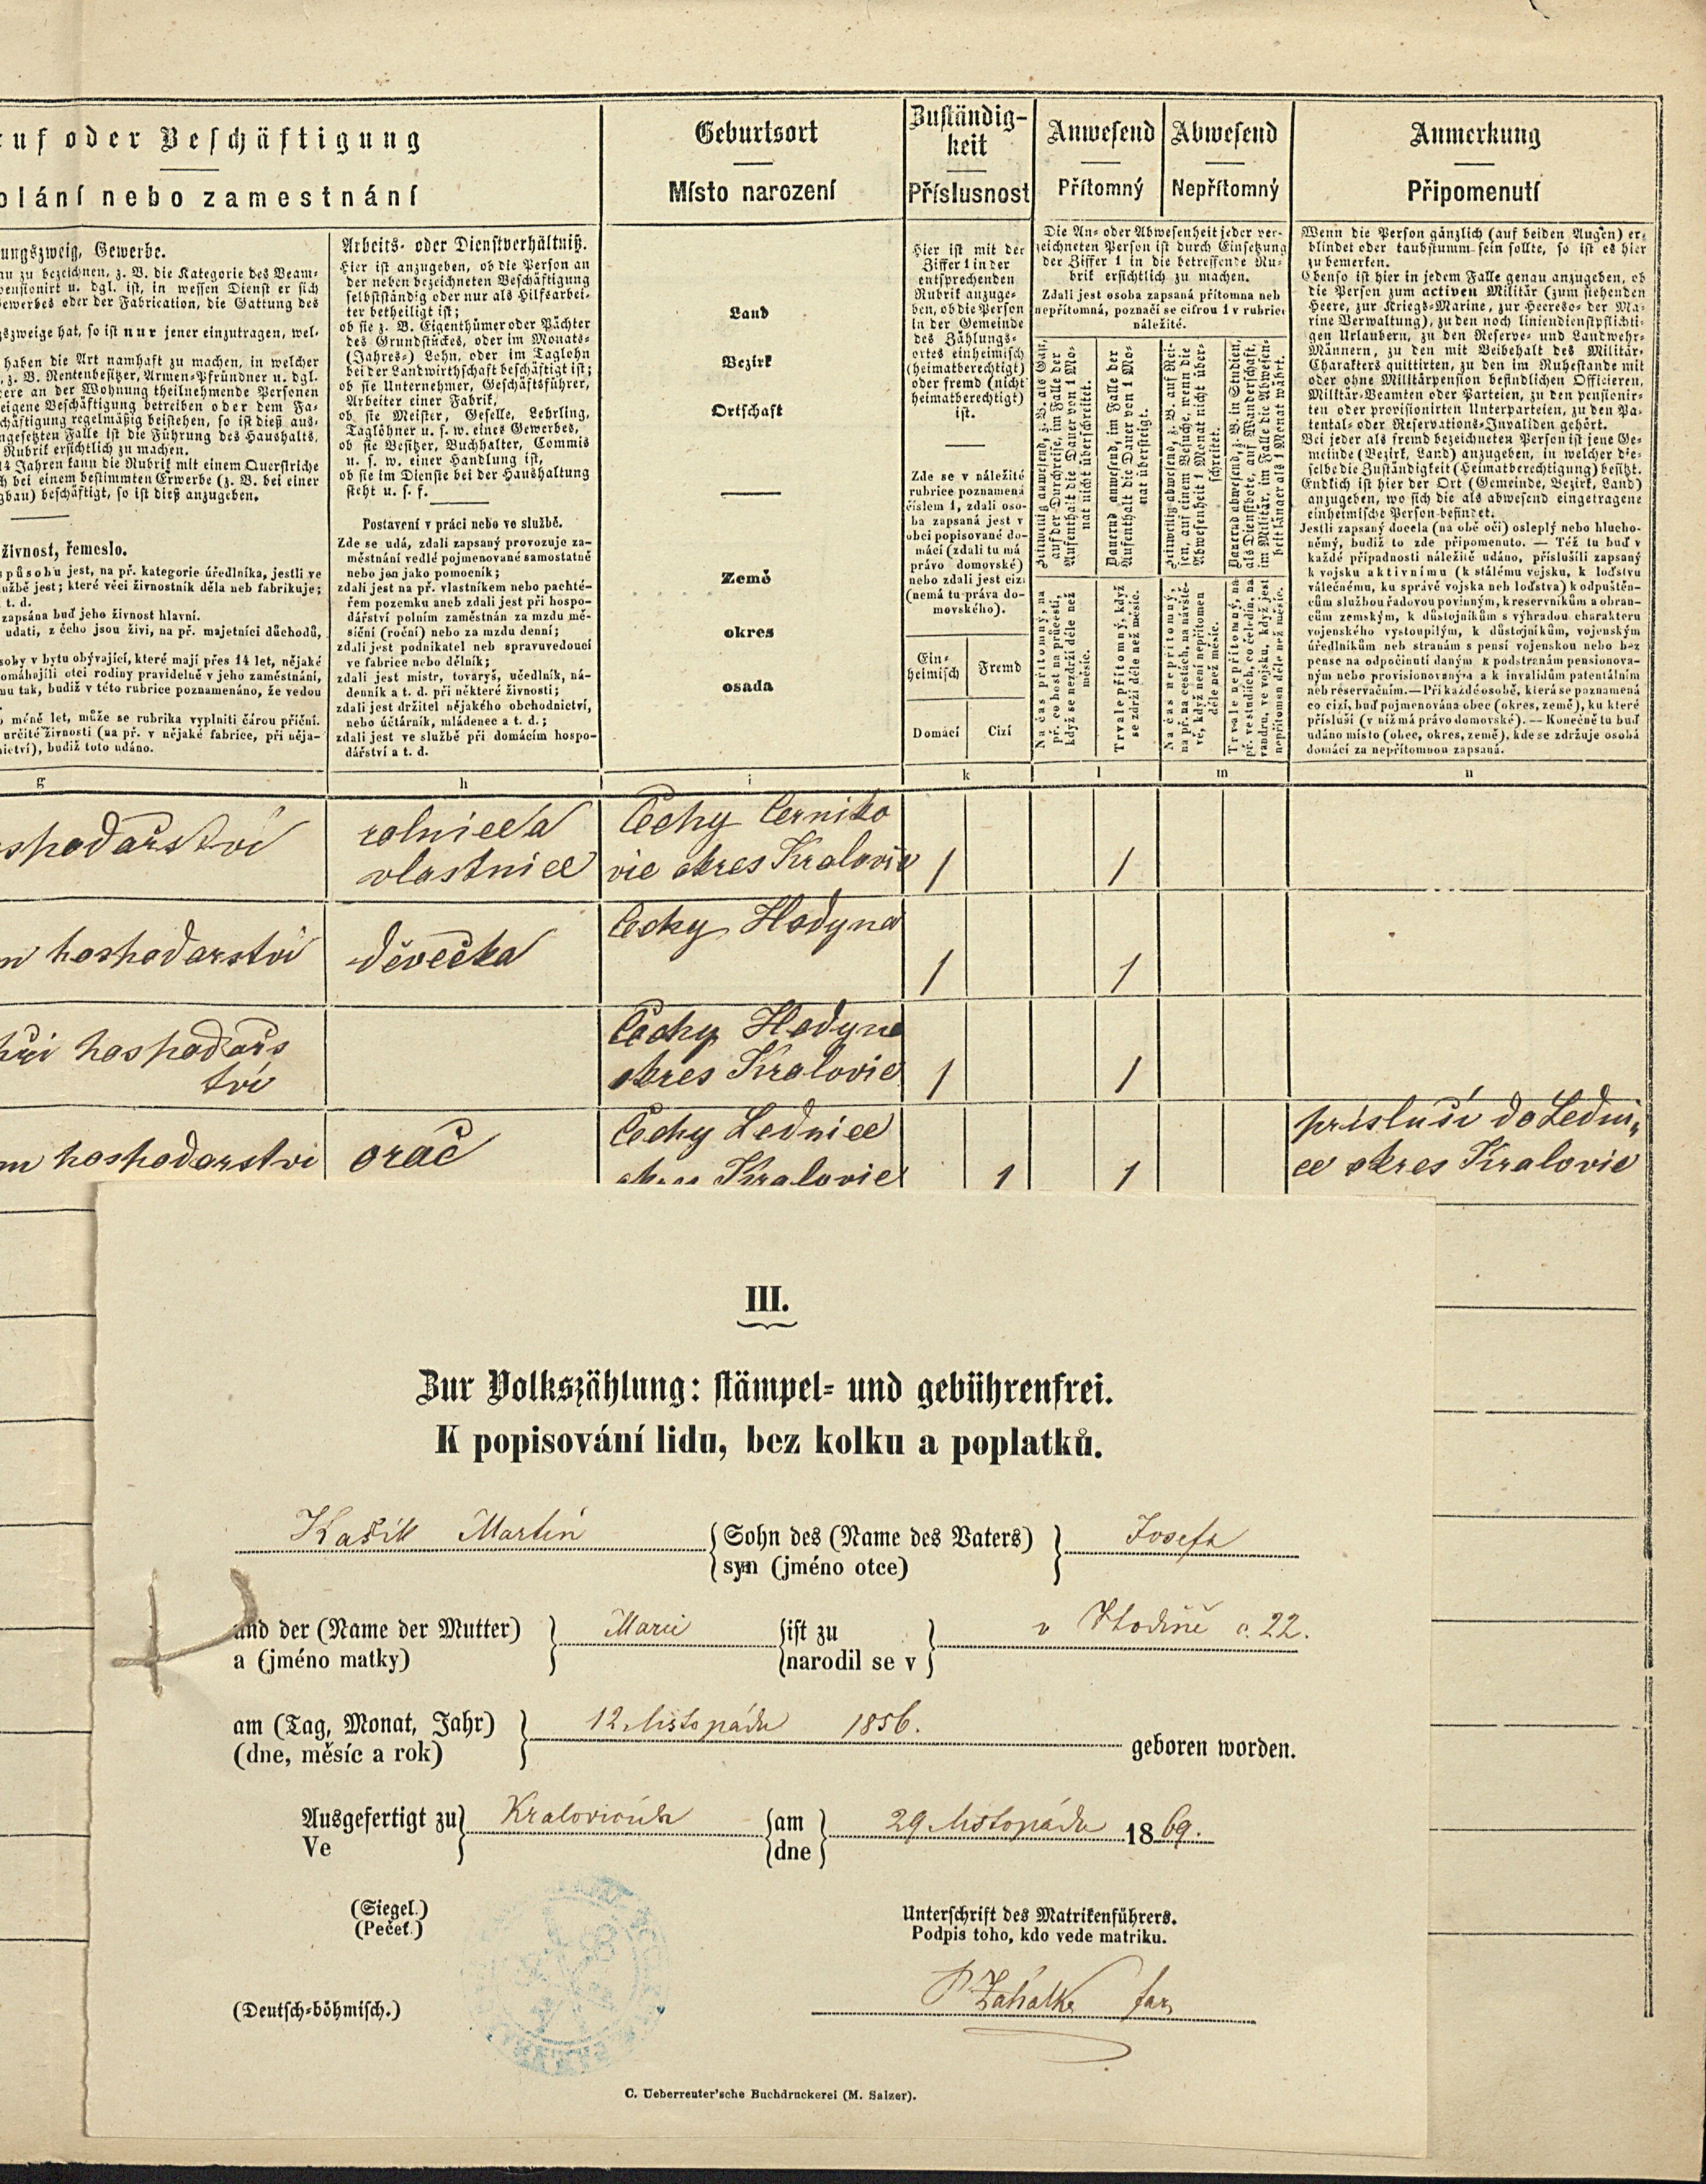 ruf oder Beschäftigung
olání nebo zamestnání
ungszweig, Gewerbe.
au zu bezeichnen, z. B. die Kategorie des Beam-
pensionirt u. dgl. ist, in wessen Dienst er sich
ewerbes oder der Fabrication, die Gattung des
gszweige hat, so ist nur jener einzutragen, wel-
haben die Art namhaft zu machen, in welcher
, z. B. Rentenbesitzer, Armen-Pfründner u. dgl.
ere an der Wohnung theilnehmende Personen
eigene Beschäftigung betreiben oder dem Fa-
chäftigung regelmäßig beistehen, so ist dieß aus-
ngesetzten Falle ist die Führung des Haushalts,
Rubrik ersichtlich zu machen.
14 Jahren kann die Rubrik mit einem Querstriche
h bei einem bestimmten Erwerbe (z. B. bei einer
gbau) beschäftigt, so ist dieß anzugeben.
živnost, řemeslo.
způsobu jest, na př. kategorie úředlníka, jestli ve
lužbě jest; které věci živnostník děla neb fabrikuje;
t. d.
zapsána buď jeho živnost hlavní.
udati, z čeho jsou živi, na př. majetníci důchodů,
soby v bytu obývající, které mají přes 14 let, nějaké
omáhojíli otci rodiny pravidelně v jeho zaměstnání,
mu tak, budiž v této rubrice poznamenáno, že vedou
méně let, může se rubrika vyplniti čárou příční.
určité živnosti (na př. v nějaké fabrice, při něja-
nictví), budiž toto udáno.
g
Arbeits- oder Dienstverhältniß.
Hier ist anzugeben, ob die Person an
der neben bezeichneten Beschäftigung
selbstständig oder nur als Hilfsarbei-
ter betheiligt ist;
ob sie z. B. Eigenthümer oder Pächter
des Grundstückes, oder im Monats-
(Jahres-) Lohn, oder im Taglohn
bei der Landwirthschaft beschäftigt ist;
ob sie Unternehmer, Geschäftsführer,
Arbeiter einer Fabrik,
ob sie Meister, Geselle, Lehrling,
Taglöhner u. s. w. eines Gewerbes,
ob sie Besitzer, Buchhalter, Commis
u. s. w. einer Handlung ist,
ob sie im Dienste bei der Haushaltung
steht u. s. f.
Postavení v práci nebo ve službě.
Zde se udá, zdali zapsaný provozuje za-
městnání vedlé pojmenované samostatně
nebo jen jako pomocník;
zdali jest na př. vlastníkem nebo pachté-
řem pozemku aneb zdali jest při hospo-
dářství polním zaměstnán za mzdu mě-
síční (roční) nebo za mzdu denní;
zdali jest podnikatel neb spravuvedoucí
ve fabrice nebo dělník;
zdali jest mistr, tovaryš, učedlník, ná-
denník a t. d. při některé živnosti;
zdali jest držitel nějakého obchodnictví,
nebo účtárník, mládenec a t. d.;
zdali jest ve službě při domácím hospo-
dářství a t. d.
h
Geburtsort
Místo narození
Land
Bezirk
Ortschaft
Země
okres
osada
i
Zuständig-
keit
Příslusnost
Hier ist mit der
Ziffer 1 in der
entsprechenden
Rubrik anzuge-
ben, ob die Person
in der Gemeinde
des Zählungs-
ortes einheimisch
(heimatberechtigt)
oder fremd (nicht
heimatberechtigt)
ist.
Zde se v náležité
rubrice poznamená
číslem 1, zdali oso-
ba zapsaná jest v
obci popisované do-
mácí (zdali tu má
právo domovské)
nebo zdali jest cizí
(nemá tu práva do-
movského).
Ein-
heimisch
Fremd
Domácí
Cizí
k
Anwesend
Přítomný
Abwesend
Nepřítomný
Die An- oder Abwesenheit jeder ver-
zeichneten Person ist durch Einsetzung
der Ziffer 1 in die betreffende Ru-
brik ersichtlich zu machen.
Zdali jest osoba zapsaná přítomna neb
nepřítomná, poznačí se cifrou 1 v rubrice
náležité.
Zeitweilig anwesend, z. B. als Gast,
auf der Durchreise, im Falle der
Aufenthalt die Dauer von 1 Mo-
nat nicht überschreitet.
Dauernd anwesend, im Falle der
Aufenthalt die Dauer von 1 Mo-
nat übersteigt.
Zeitweilig abwesend, z. B. auf Rei-
sen, auf einem Besuche, wenn die
Abwesenheit 1 Monat nicht über-
schreitet.
Dauernd abwesend, z. B. in Studien,
als Dienstbote, auf Wanderschaft,
im Militär, im Falle die Abwesen-
heit länger als 1 Monat währt.
Na čas přítomný, na
př. co host na průcestí,
když se nezdrží déle než
měsíc.
Trvale přítomný, když
se zdrží déle než měsíc.
Na čas nepřítomný,
na př. na cestách, na návště-
vě, když není nepřítomen
déle než měsíc.
Trvale nepřítomný, na
př. ve studiích, co čeledín, na
vandru, ve vojsku, když jest
nepřítomen déle než měsíc.
l
m
Anmerkung
Připomenutí
Wenn die Person gänzlich (auf beiden Augen) er-
blindet oder taubstumm sein sollte, so ist es hier
zu bemerken.
Ebenso ist hier in jedem Falle genau anzugeben, ob
die Person zum activen Militär (zum stehenden
Heere, zur Kriegs-Marine, zur Heeres- oder Ma-
rine Verwaltung), zu den noch liniendienstpflichti-
gen Urlaubern, zu den Reserve- und Landwehr-
Männern, zu den mit Beibehalt des Militär-
Charakters quittirten, zu den im Ruhestande mit
oder ohne Militärpension befindlichen Officieren,
Militär-Beamten oder Parteien, zu den pensionir-
ten oder provisionirten Unterparteien, zu den Pa-
tental- oder Reservations-Invaliden gehört.
Bei jeder als fremd bezeichneten Person ist jene Ge-
meinde (Bezirk, Land) anzugeben, in welcher die-
selbe die Zuständigkeit (Heimatberechtigung) besitzt.
Endlich ist hier der Ort (Gemeinde, Bezirk, Land)
anzugeben, wo sich die als abwesend eingetragene
einheimische Person befindet.
Jestli zapsaný docela (na obě oči) osleplý nebo hlucho-
němý, budiž to zde připomenuto. — Též tu buď v
každé případnosti náležitě udáno, přísluší­li zapsaný
k vojsku aktivnímu (k stálému vojsku, k loďstvu
válečnému, ku správě vojska neb loďstva) k odpuštěn-
cům službou řadovou povinným, k reservníkům a obran-
cům zemským, k důstojníkům s výhradou charakteru
vojenského vystouplým, k důstojníkům, vojenským
úředlníkům neb stranám s pensí vojenskou nebo bez
pense na odpočinutí daným k podstranám pensionova-
ným nebo provisionovaným a k invalidům patentálním
neb réservačním. — Při každé osobě, která se poznamená
co cizí, buď pojmenována obec (okres, země), ku které
přísluší (v níž má právo domovské). — Konečně tu buď
udáno místo (obec, okres, země), kde se zdržuje osoba
domácí za nepřítomnou zapsaná.
n
spodařství
rolnice a
vlastnice
Čechy Černiko
vic okres Kralovic
1
1
m hospodarství
děvečka
Čechy Hodyna
1
1
při hospodářs
tví
Čechy Hodyna
okres Kralovic
1
1
m hospodarstvi
orač
Čechy Lednice
okres Kralovic
1
1
přísluší do Ledni„
ce okres Kralovic
III.
Zur Volkszählung: stämpel- und gebührenfrei.
K popisování lidu, bez kolku a poplatků.
Kašík Martin
Sohn des (Name des Vaters)
syn (jméno otce)
Josefa
und der (Name der Mutter)
a (jméno matky)
Marie
ist zu
narodil se v
v Hodině č. 22.
am (Tag, Monat, Jahr)
(dne, měsíc a rok)
12 listopádu 1856.
geboren worden.
Ausgefertigt zu
Ve
Kralovicích
am
dne
29 listopádu 1869.
(Siegel.)
(Pečeť.)
Unterschrift des Matrikenführers.
Podpis toho, kdo vede matriku.
P. Záhalka far.
(Deutsch-böhmisch.)
C. Ueberreuter'sche Buchdruckerei (M. Salzer).